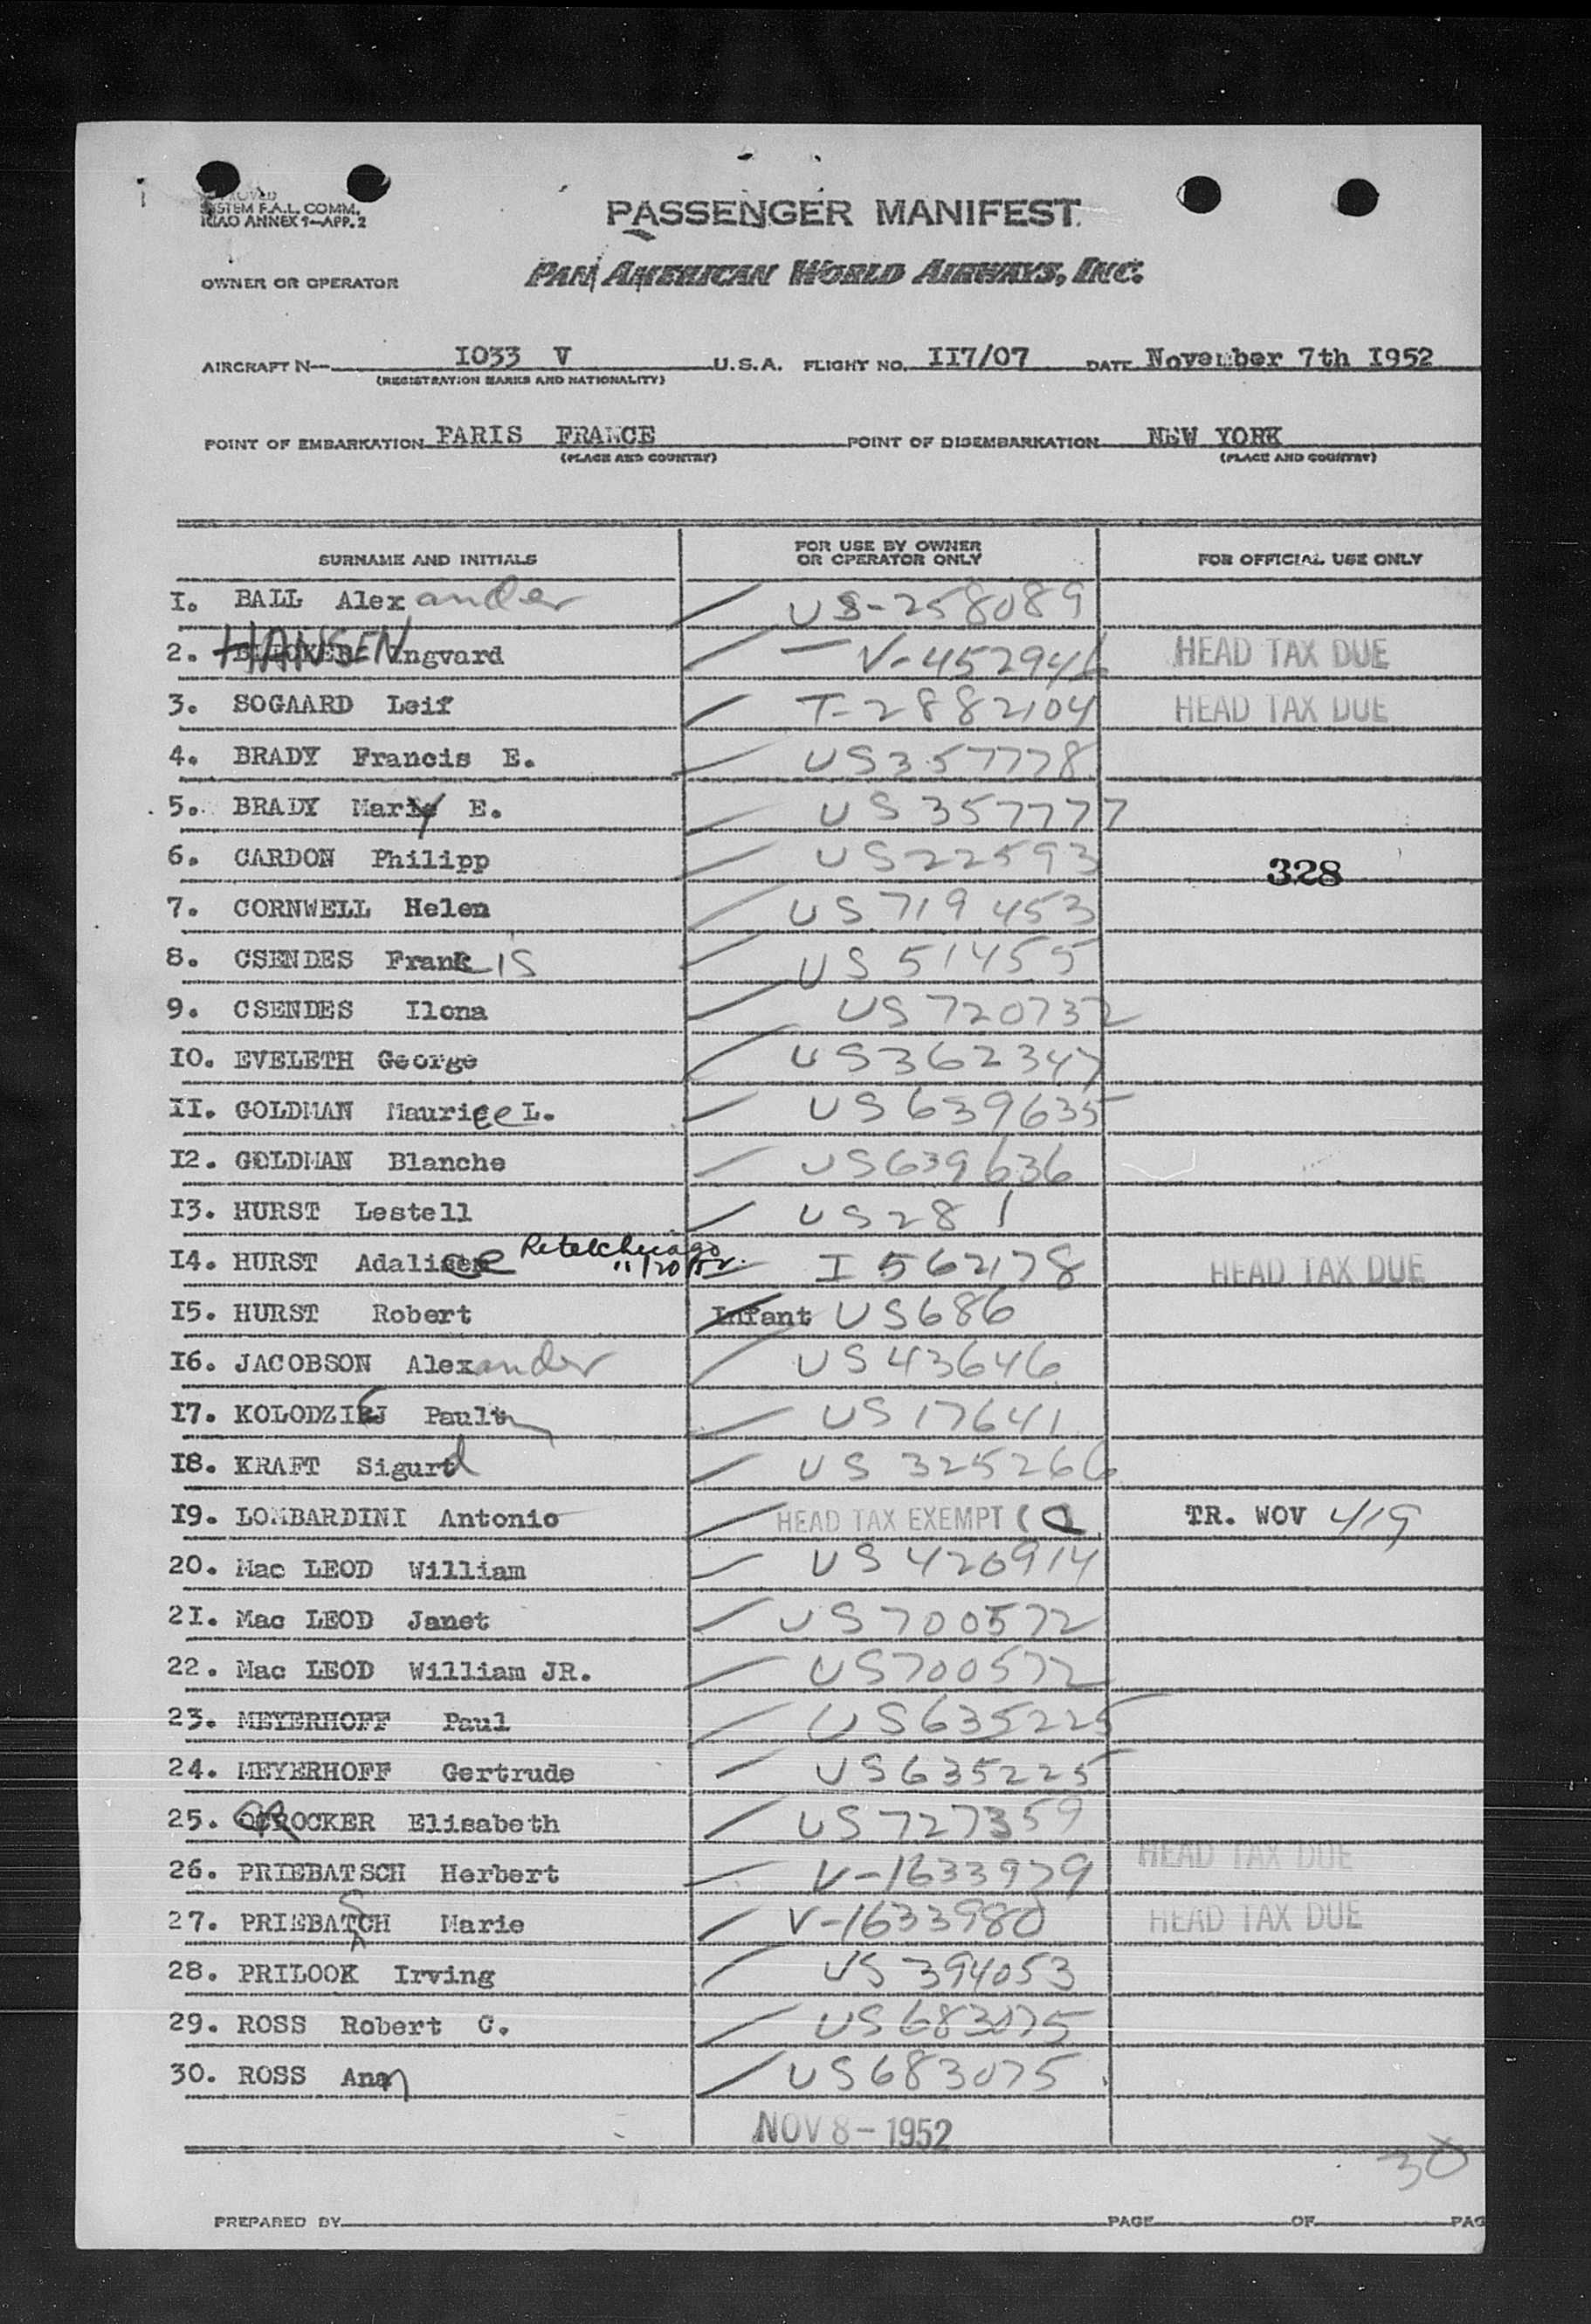 APPROVED
SYSTEM F.A.L. COMM.
ICAO ANNEX 9-APP. 2
PASSENGER MANIFEST
OWNER OR OPERATOR PAN AMERICAN WORLD AIRWAYS, INC.
AIRCRAFT N- I033 V U.S.A. FLIGHT NO. II7/07 DATE November 7th I952
(REGISTRATION MARKS AND NATIONALITY)
POINT OF EMBARKATION PARIS FRANCE POINT OF DISEMBARKATION NEW YORK
(PLACE AND COUNTRY) (PLACE AND COUNTRY)
SURNAME AND INITIALS FOR USE BY OWNER OR OPERATOR ONLY FOR OFFICIAL USE ONLY
I. BALL Alexander US-258089
2. HANSEN Ingvard V-452946 HEAD TAX DUE
3. SOGAARD Leif T-2882104 HEAD TAX DUE
4. BRADY Francis E. US357778
5. BRADY Mary E. US 357777
6. CARDON Philipp US22593
328
7. CORNWELL Helen US719453
8. CSENDES Francis US 51455
9. CSENDES Ilona US 720732
I0. EVELETH George US362347
II. GOLDMAN Maurice L. US 639635
I2. GOLDMAN Blanche US639636
I3. HURST Lestell US281
I4. HURST Adalice 11/20/52 I 562178 HEAD TAX DUE
I5. HURST Robert Infant US686
I6. JACOBSON Alexander US43646
I7. KOLODZIEJ Paul US 17641
I8. KRAFT Sigurd US 325266
I9. LOMBARDINI Antonio HEAD TAX EXEMPT TR. WOV 419
20. Mac LEOD William US 420914
2I. Mac LEOD Janet US700572
22. Mac LEOD William JR. US700572
23. MEYERHOFF Paul US635225
24. MEYERHOFF Gertrude US635225
25. CROCKER Elisabeth US727359
26. PRIEBATSCH Herbert V-1633979 HEAD TAX DUE
27. PRIEBATSCH Marie V-1633980 HEAD TAX DUE
28. PRILOOK Irving US 394053
29. ROSS Robert C. US683075
30. ROSS Ann US683075
NOV 8 - 1952
30
PREPARED BY PAGE OF PAG